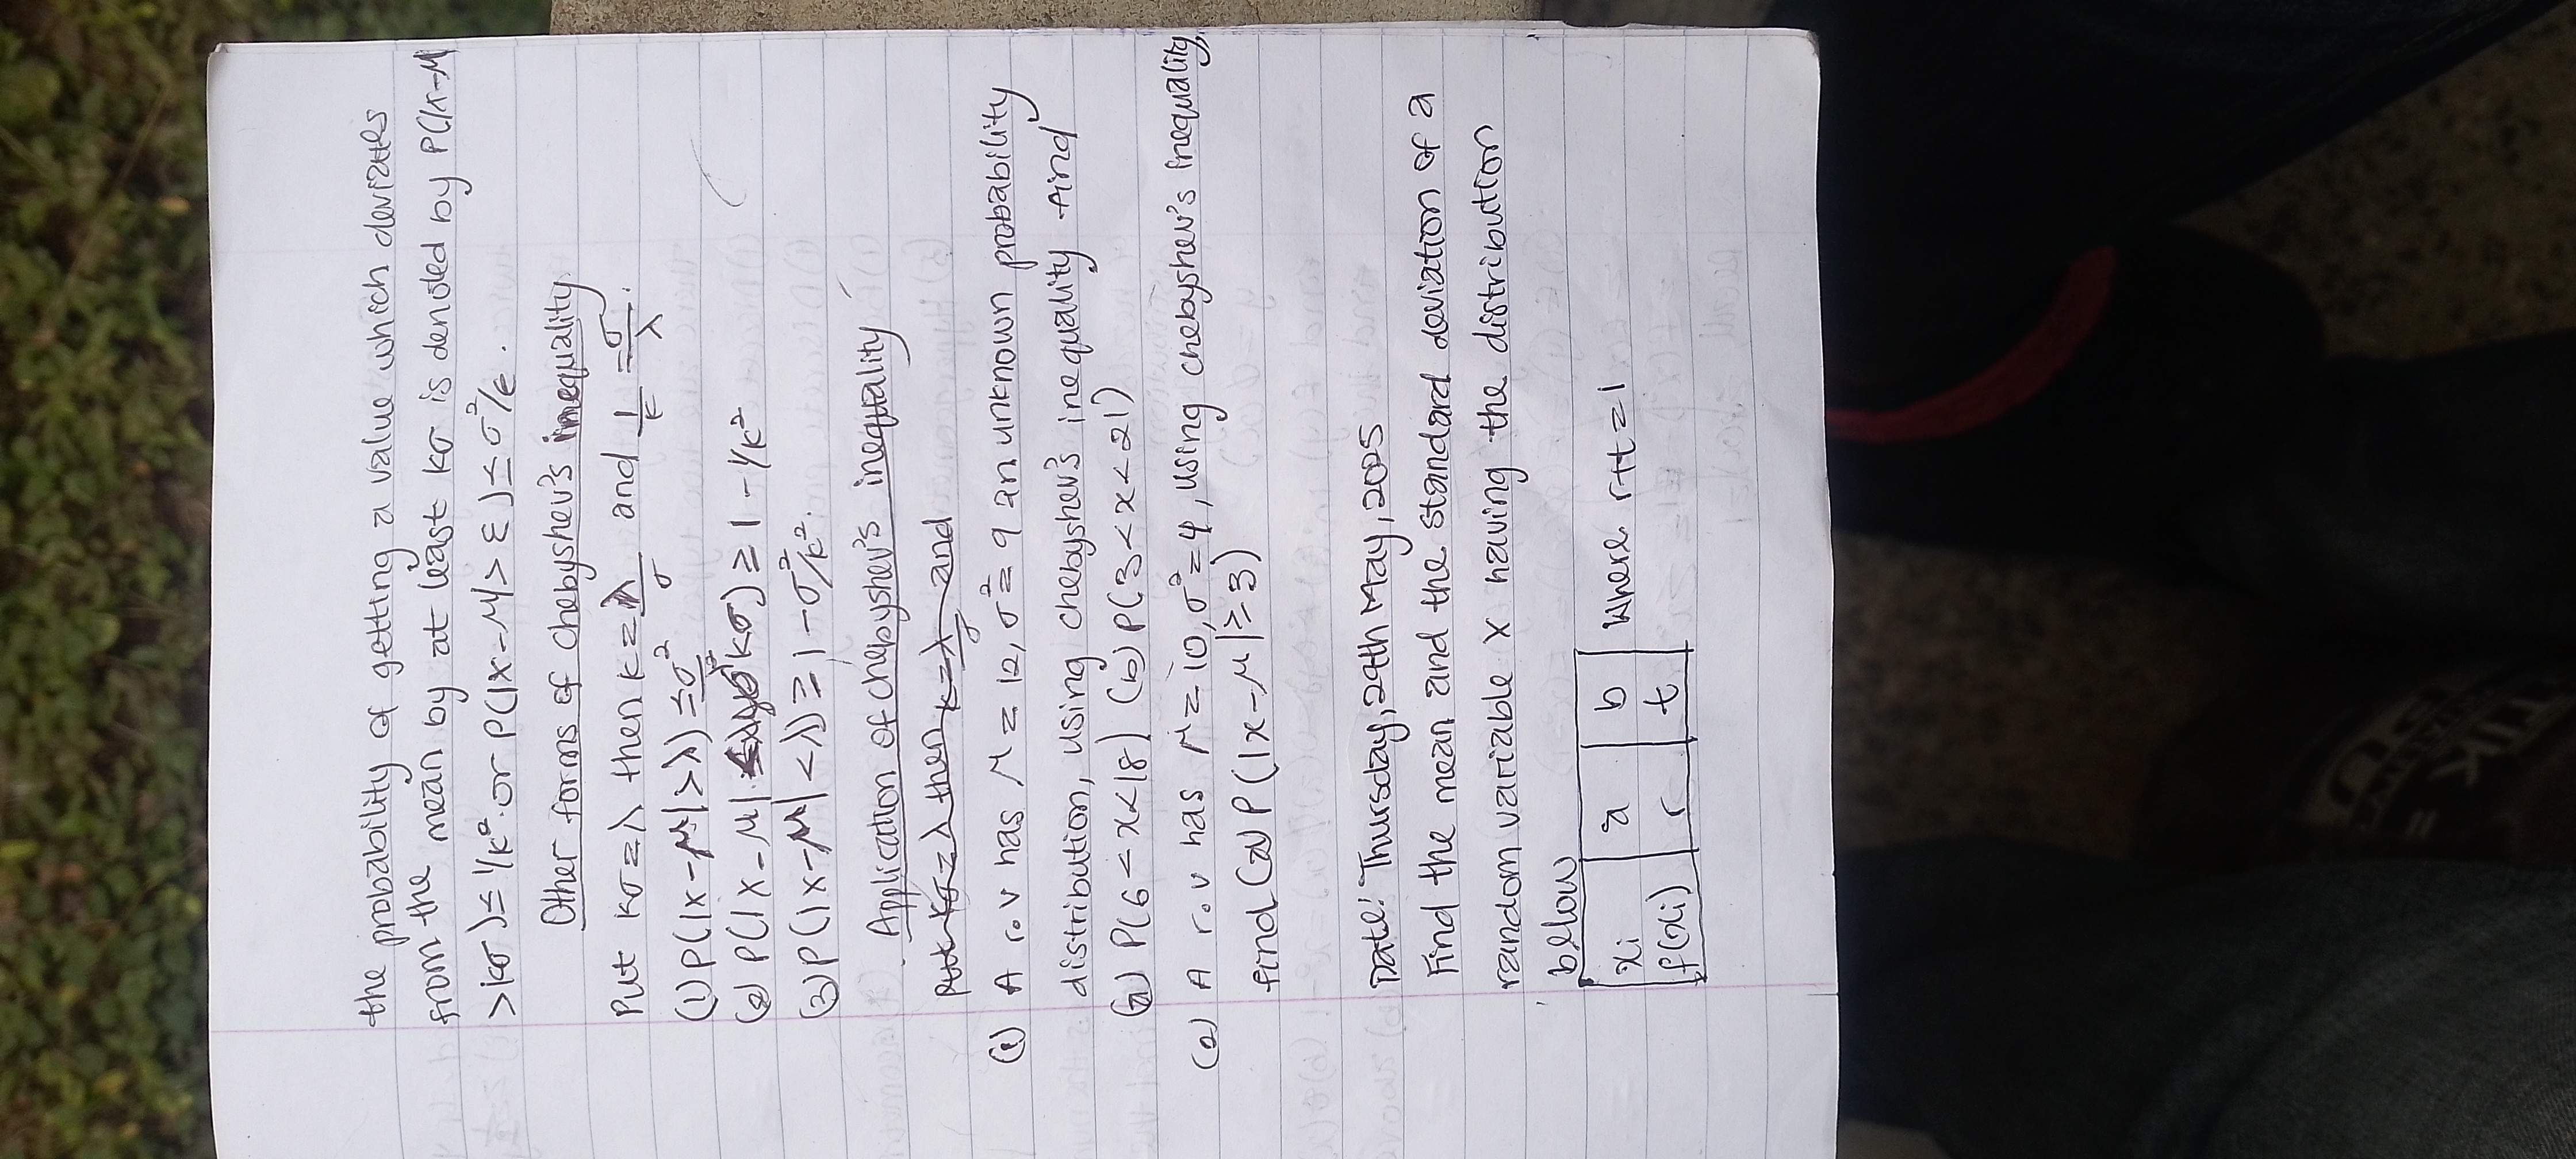 the probability of getting a value which deviates
from the mean by at least kσ is denoted by P(|x-μ|
>kσ)≤ 1/k². or P(|x-μ|> ε)≤ σ²/ε.
Other forms of chebyshev's inequality.
Put kσ=λ then k=λ/σ and 1/k=σ/λ.
(1) P(|x-μ|>λ) ≤ σ²/λ²
(2) P(|x-μ| kσ) ≥ 1 - 1/k²
(3) P(|x-μ|<λ) ≥ 1-σ²/k².
Application of chebyshev's inequality
Put kσ=λ then k=λ/σ and
(1) A r.v has μ=12, σ²=9 an unknown probability
distribution, using chebyshev's inequality find
(a) P(6<x<18) (b) P(3<x<21)
(2) A r.v has μ=10, σ²=4, using chebyshev's inequality,
find (a) P(|x-μ|≥3)
Date: Thursday, 29th May, 2025
Find the mean and the standard deviation of a
random variable x having the distribution
below
xi a b where r+t=1
f(xi) r t